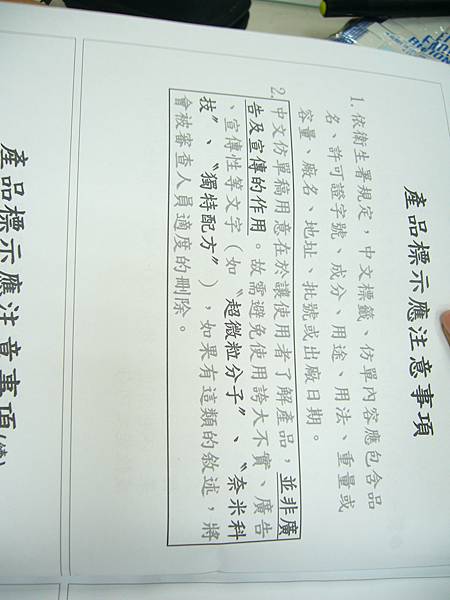 產品標示應注意事項
1. 依衛生署規定，中文標籤、仿單內容應包含品
名、許可證字號、成分、用途、用法、重量或
容量、廠名、地址、批號或出廠日期。
2. 中文仿單稿用意在於讓使用者了解產品，並非廣
告及宣傳的作用。故需避免使用誇大不實、廣告
、宣傳性等文字（如〝超微粒分子〞、〝奈米科
技〞、〝獨特配方〞），如果有這類的敘述，將
會被審查人員適度的刪除。
產品標示應注意事項(續)